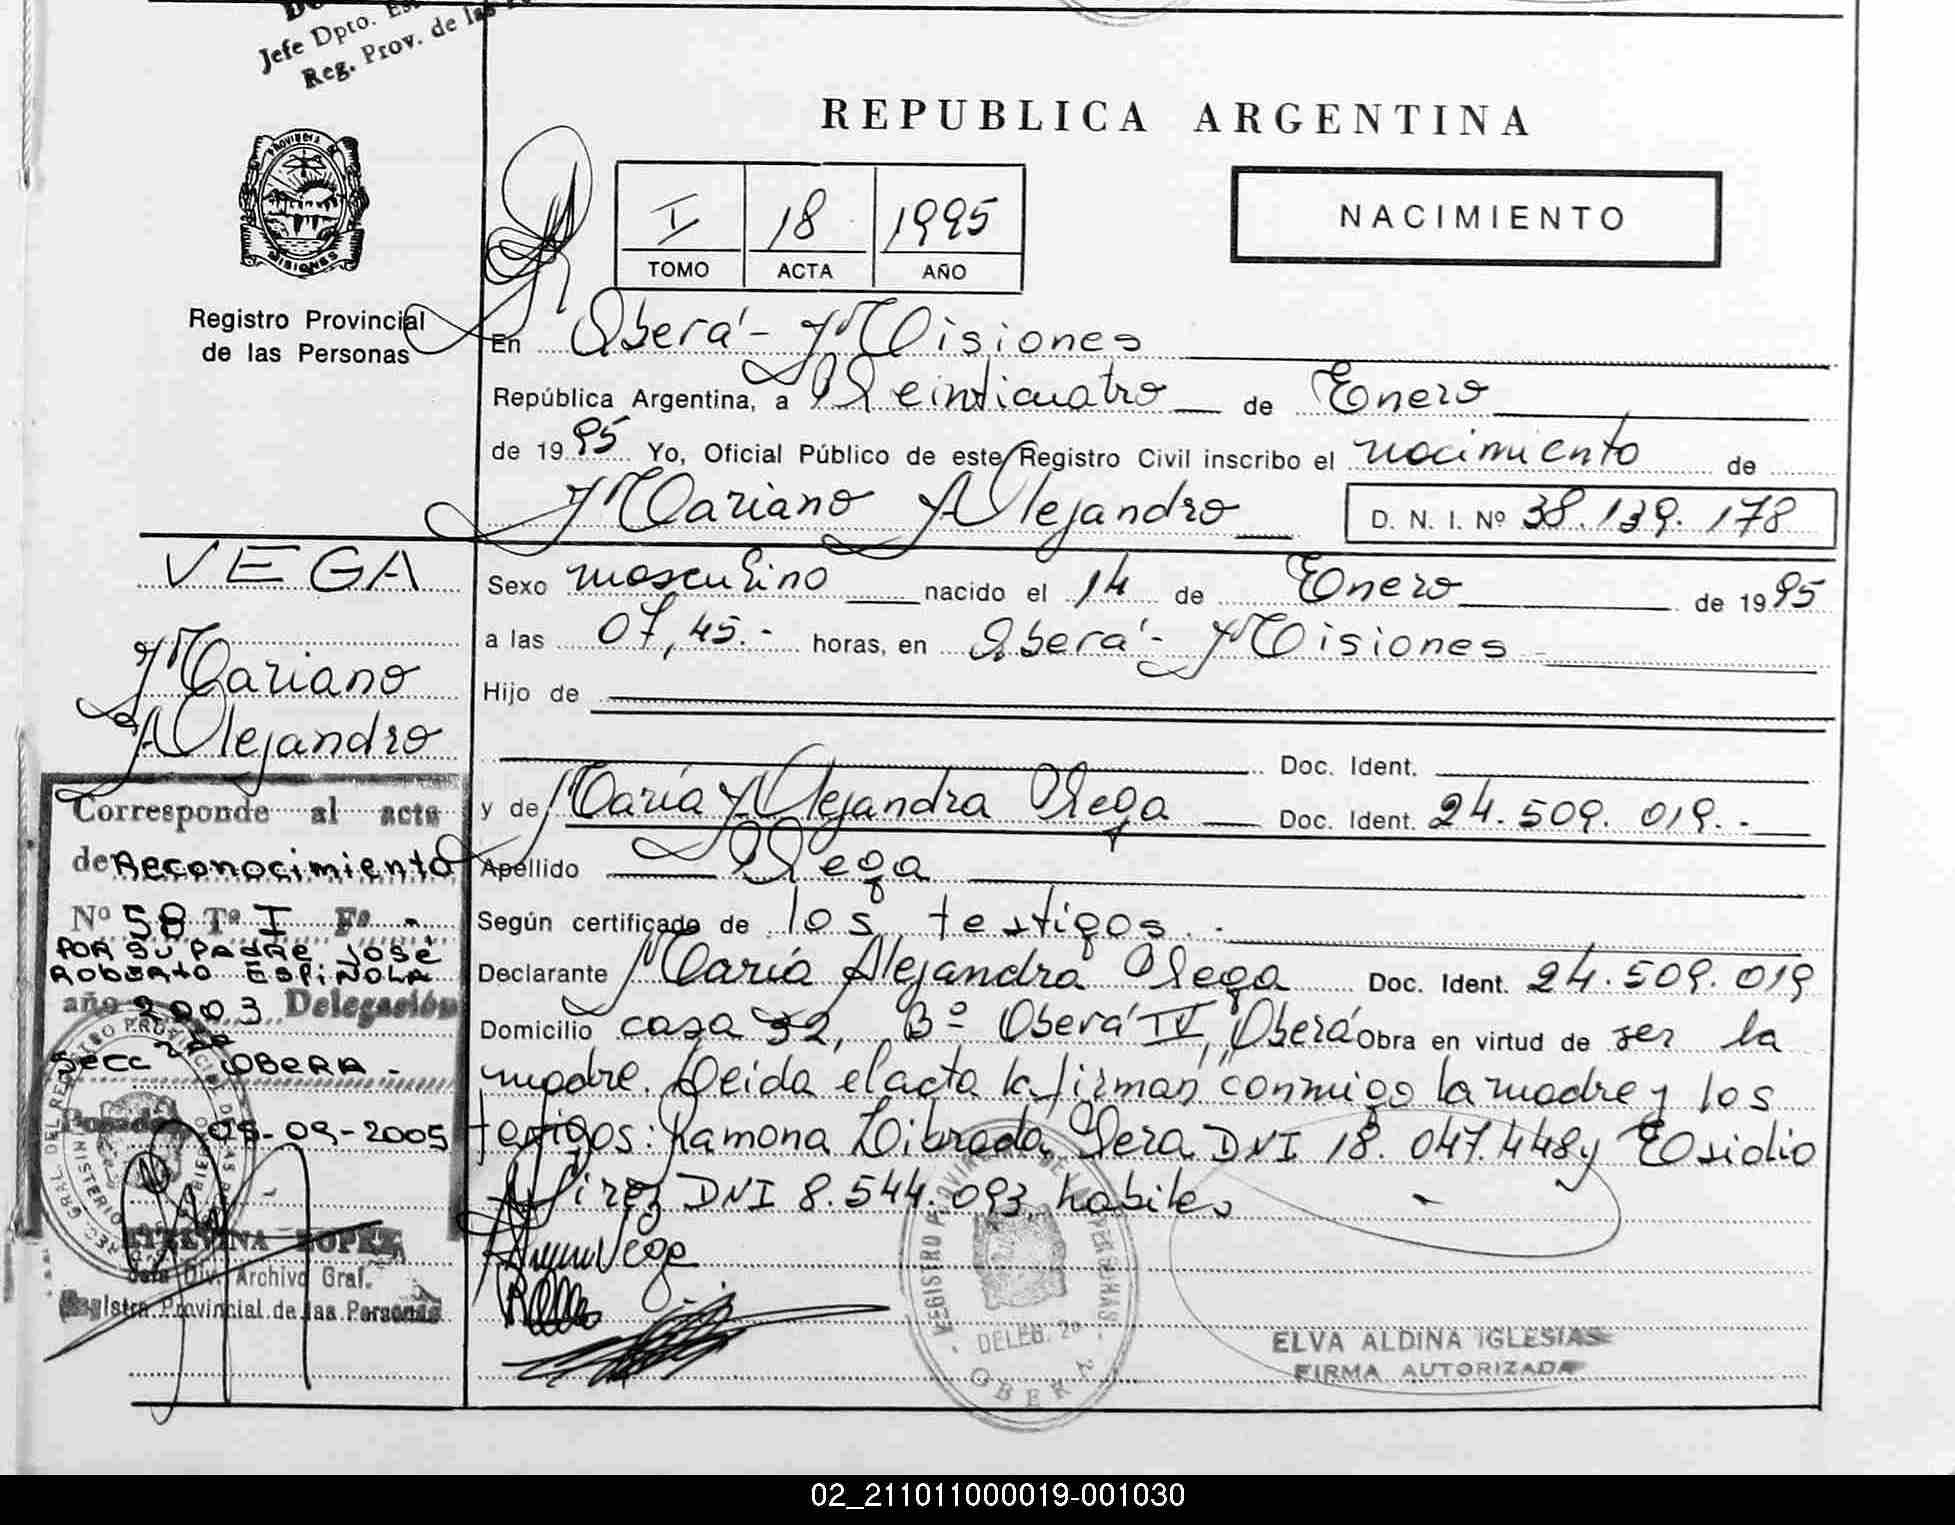 Jefe Dpto.
Reg. Prov. de las
REPUBLICA ARGENTINA
PROVINCIA DE
MISIONES
Registro Provincial
de las Personas
I 18 1995
TOMO ACTA AÑO
NACIMIENTO
En Oberá - Misiones
República Argentina, a Veinticuatro de Enero
de 1995 Yo, Oficial Público de este Registro Civil inscribo el nacimiento de
Mariano Alejandro D. N. I. Nº 38.139.178
VEGA
Mariano
Alejandro
Sexo masculino nacido el 14 de Enero de 1995
a las 07,45.- horas, en Oberá - Misiones
Hijo de
Doc. Ident.
y de María Alejandra Vega Doc. Ident. 24.509.019.-
Apellido Vega
Según certificado de los testigos.-
Declarante María Alejandra Vega Doc. Ident. 24.509.019
Domicilio casa 32, Bº Oberá IV, Oberá Obra en virtud de ser la
madre. Leida el acta la firman conmigo la madre y los
testigos: Ramona Librada Vera DNI 18.047.448 y Elsidio
Pirez DNI 8.544.093 habiles
Corresponde al acta
de Reconocimiento
Nº 58 Tº I Fº -
POR SU PADRE JOSÉ
ROBERTO ESPINOLA
año 2003 Delegación
Secc 2da OBERA -
Posadas 05-09-2005
LOPEZ
Jefa Div. Archivo Graf.
Registro Provincial de las Personas
Vega
DELEG. 2ª
OBERA
ELVA ALDINA IGLESIAS
FIRMA AUTORIZADA
02_211011000019-001030